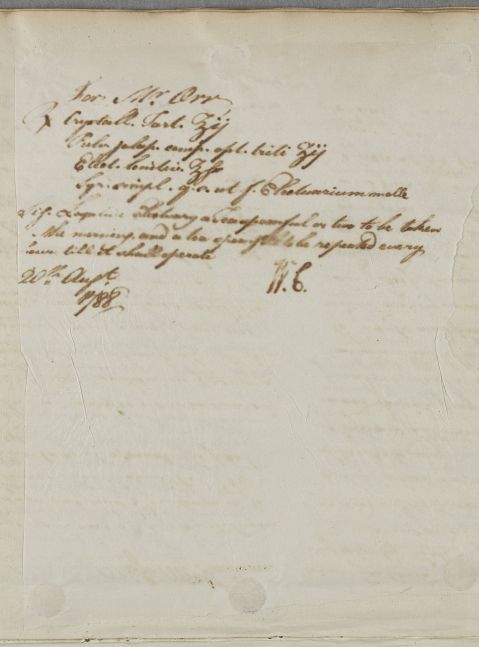 For Mr. Orr
℞ Crystall. Tart. ʒij
Pulv. jalap. comp. opt. triti ʒij
Elect. lenitiv. ʒſs
Syr. simpl. q.s. ut f. Electuarium molle
Sig. Laxative Electuary a teaspoonful or two to be taken
in the morning, and a tea spoonful to be repeated every
hour till it shall operate
20th. Augt.
1788
W. C.